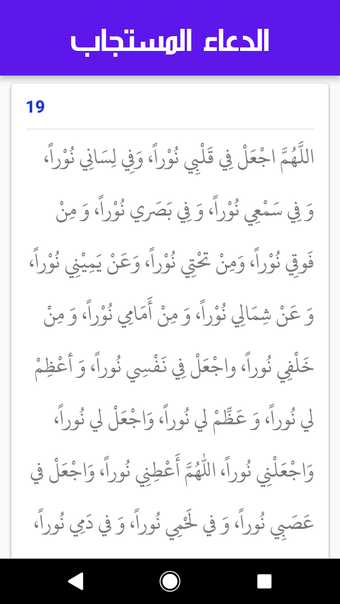 الدعاء المستجاب
19
اللَّهُمَّ اجْعَلْ فِي قَلْبِي نُوْراً، وَفِي لِسَانِي نُوْراً،
وَ فِي سَمْعِي نُوْراً، وَ فِي بَصَري نُوْراً، وَ مِنْ
فَوقِي نُوْراً، وَمِنْ تَحْتِي نُوْراً، وَعَنْ يَمِيْنِي نُوْراً،
وَ عَنْ شِمَالِي نُوْراً، وَ مِنْ أَمَامِي نُوْراً، وَ مِنْ
خَلْفِي نُوراً، واجْعَلْ فِي نَفْسِي نُوراً، وَ أَعْظِمْ
لي نُوراً، وَ عَظِّمْ لي نُوراً، وَاجْعَلْ لي نُوراً،
وَاجْعَلْنِي نُوراً، اللهُمَّ أَعْطِنِي نُوراً، وَاجْعَلْ فِي
عَصَبِي نُوراً، وَ في لَحْمِي نُوراً، وَ في دَمِي نُوراً،